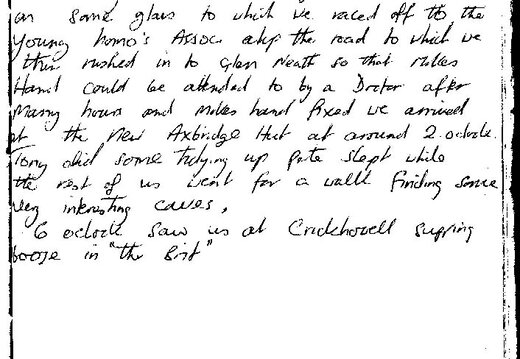 on some glass to which we raced off to the
Young homo's Assoc. up the road to which we
then rushed in to Glen Neath so that Mikes
Hand could be attended to by a Doctor after
Many hours and Mikes hand fixed we arrived
at the New Axbridge Hut at around 2.oclock.
Tony did some tidying up Pete slept while
the rest of us went for a walk finding some
very interesting caves,
6 oclock saw us at Crickhowell supping
booze in "the